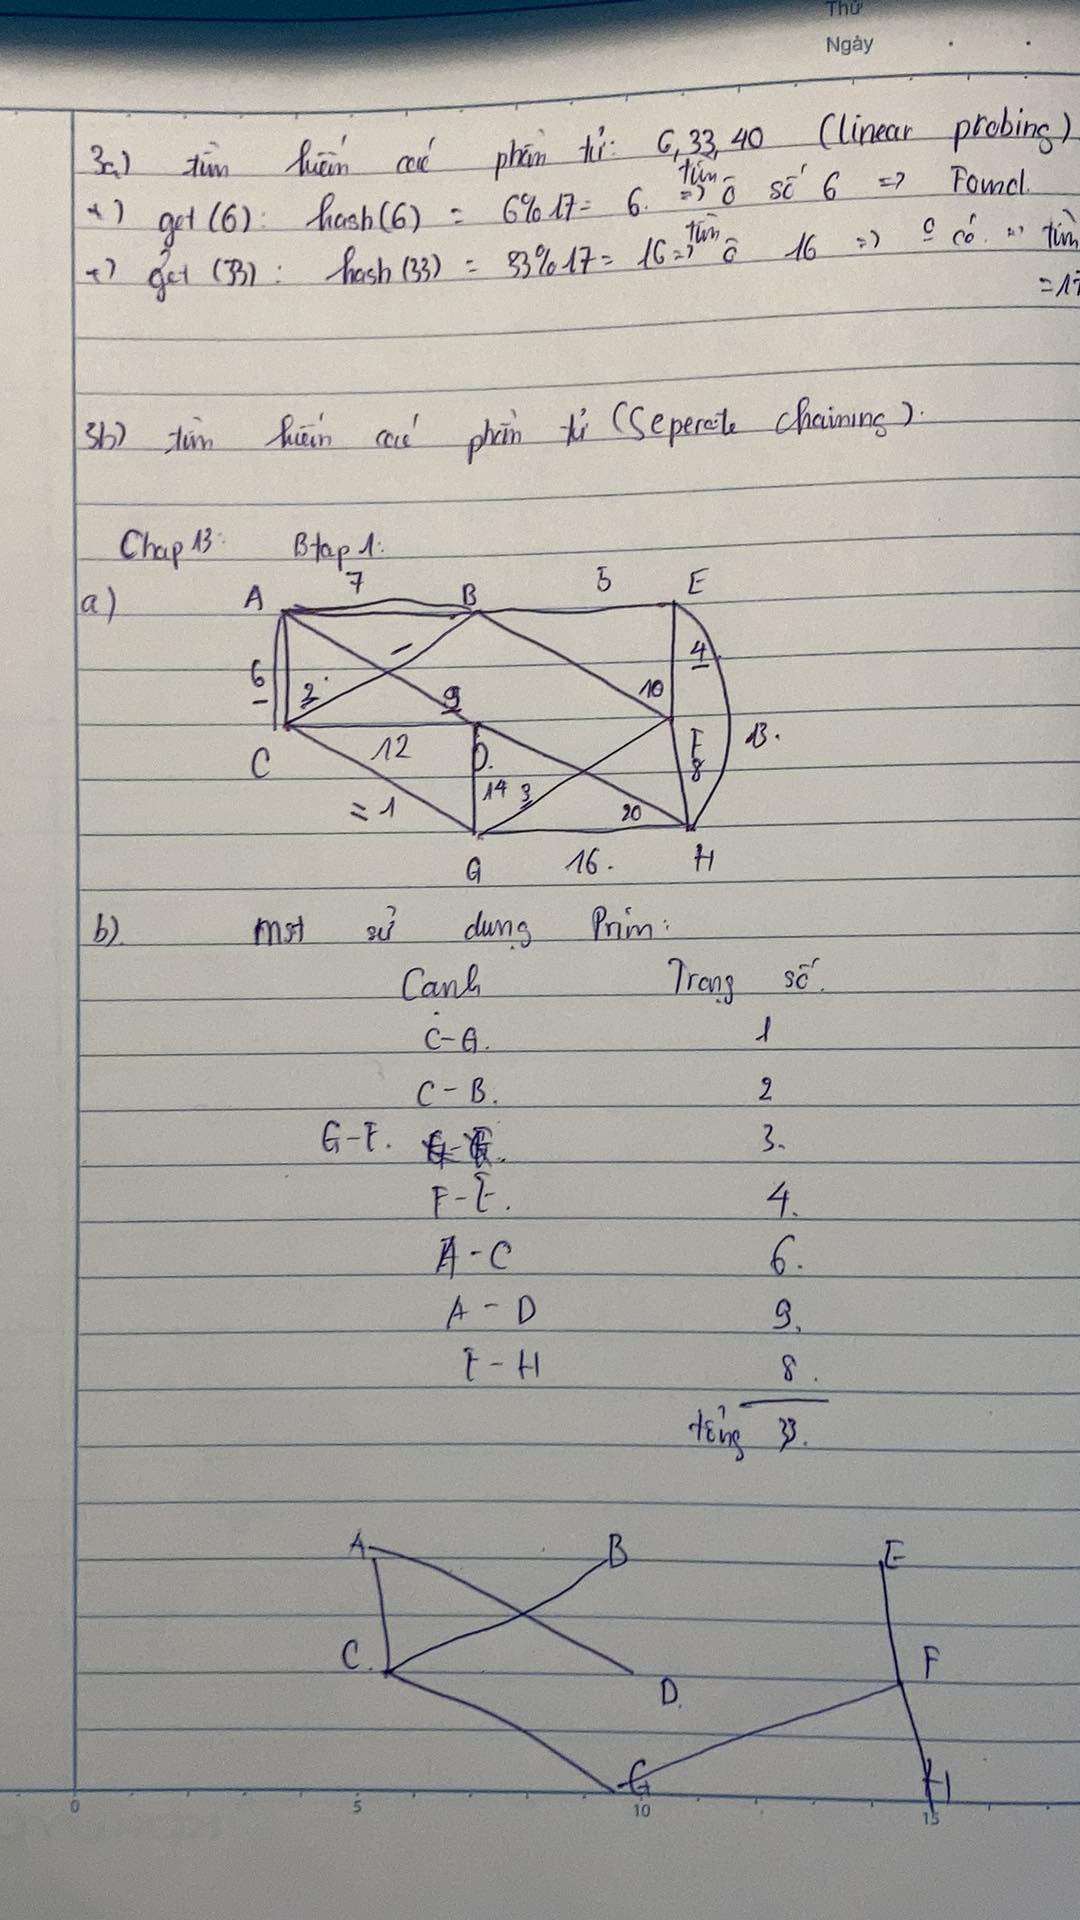 Thứ
Ngày
3a) tìm kiếm các phần tử: 6, 33, 40 (linear probing)
+) get(6): hash(6) = 6%17 = 6. => tìm ô số 6 => Found.
+) get(33): hash(33) = 33%17 = 16 => tìm ô 16 => có tìm
= 17
3b) tìm kiếm các phần tử (Seperate Chaining).
Chap 13: Btap 1:
a)
7
A B 5 E
6 2 9 10 4
C 12 D. F 13.
= 1 14 3 20 8
G 16. H
b) MST sử dụng Prim:
Cạnh Trọng số.
C-G. 1
C-B. 2
G-F. 3.
F-E. 4.
A-C 6.
A-D 9.
F-H 8.
tổng 33.
A B E
C. D. F
G H
0 5 10 15